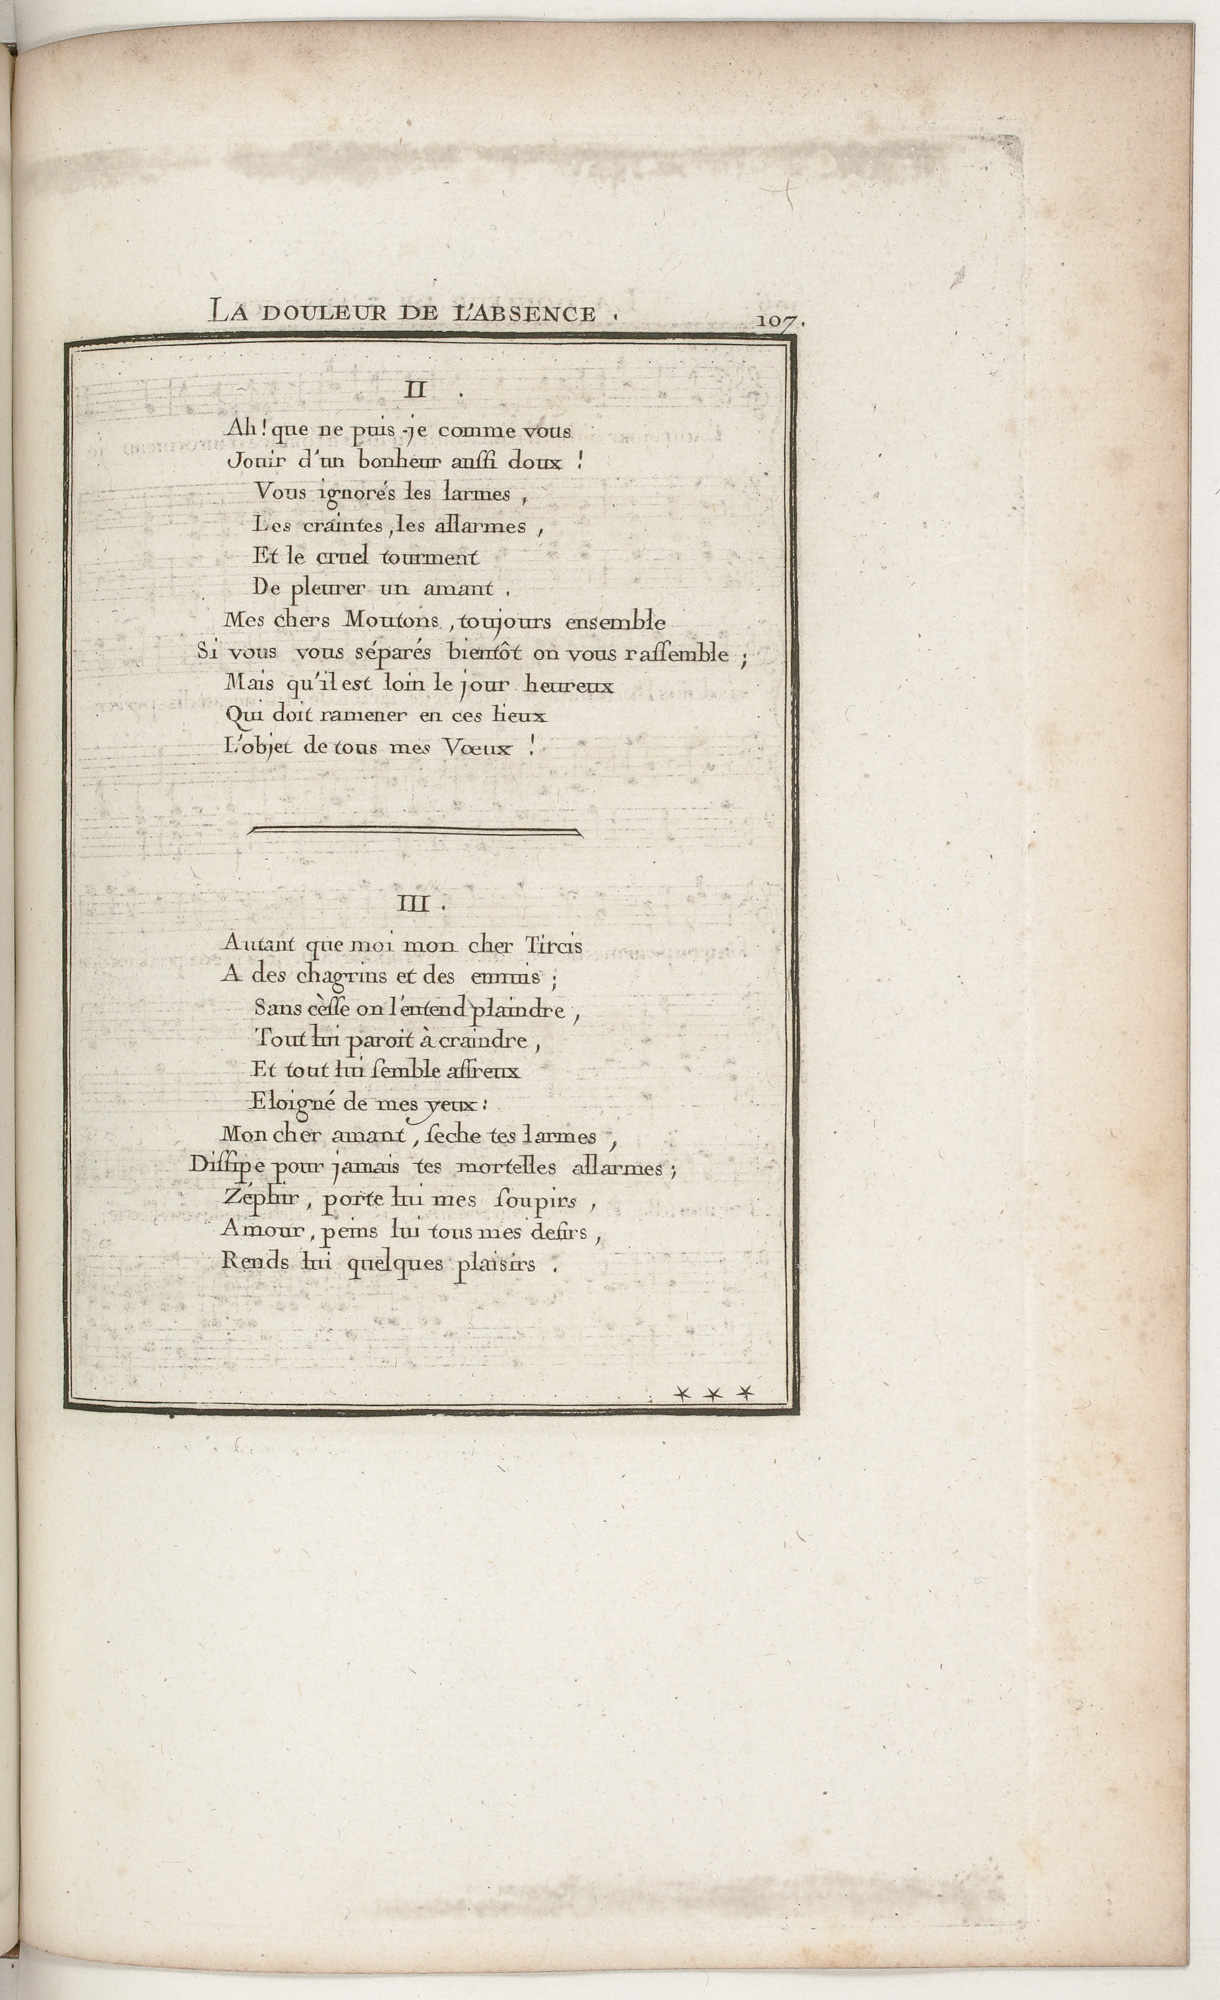 LA DOULEUR DE L'ABSENCE .
107.
II .
Ah ! que ne puis-je comme vous
Jouir d'un bonheur auſſi doux !
Vous ignorés les larmes ,
Les craintes , les allarmes ,
Et le cruel tourment
De pleurer un amant .
Mes chers Moutons , toujours ensemble
Si vous vous séparés bientôt on vous raſſemble ;
Mais qu'il est loin le jour heureux
Qui doit ramener en ces lieux
L'objet de tous mes Vœux !
III .
Autant que moi mon cher Tircis
A des chagrins et des ennuis ;
Sans cèſſe on l'entend plaindre ,
Tout lui paroit à craindre ,
Et tout lui ſemble affreux
Eloigné de mes yeux :
Mon cher amant , ſeche tes larmes ,
Diſſipe pour jamais tes mortelles allarmes ;
Zéphir , porte lui mes ſoupirs ,
Amour , peins lui tous mes deſirs ,
Rends lui quelques plaisirs .
* * *